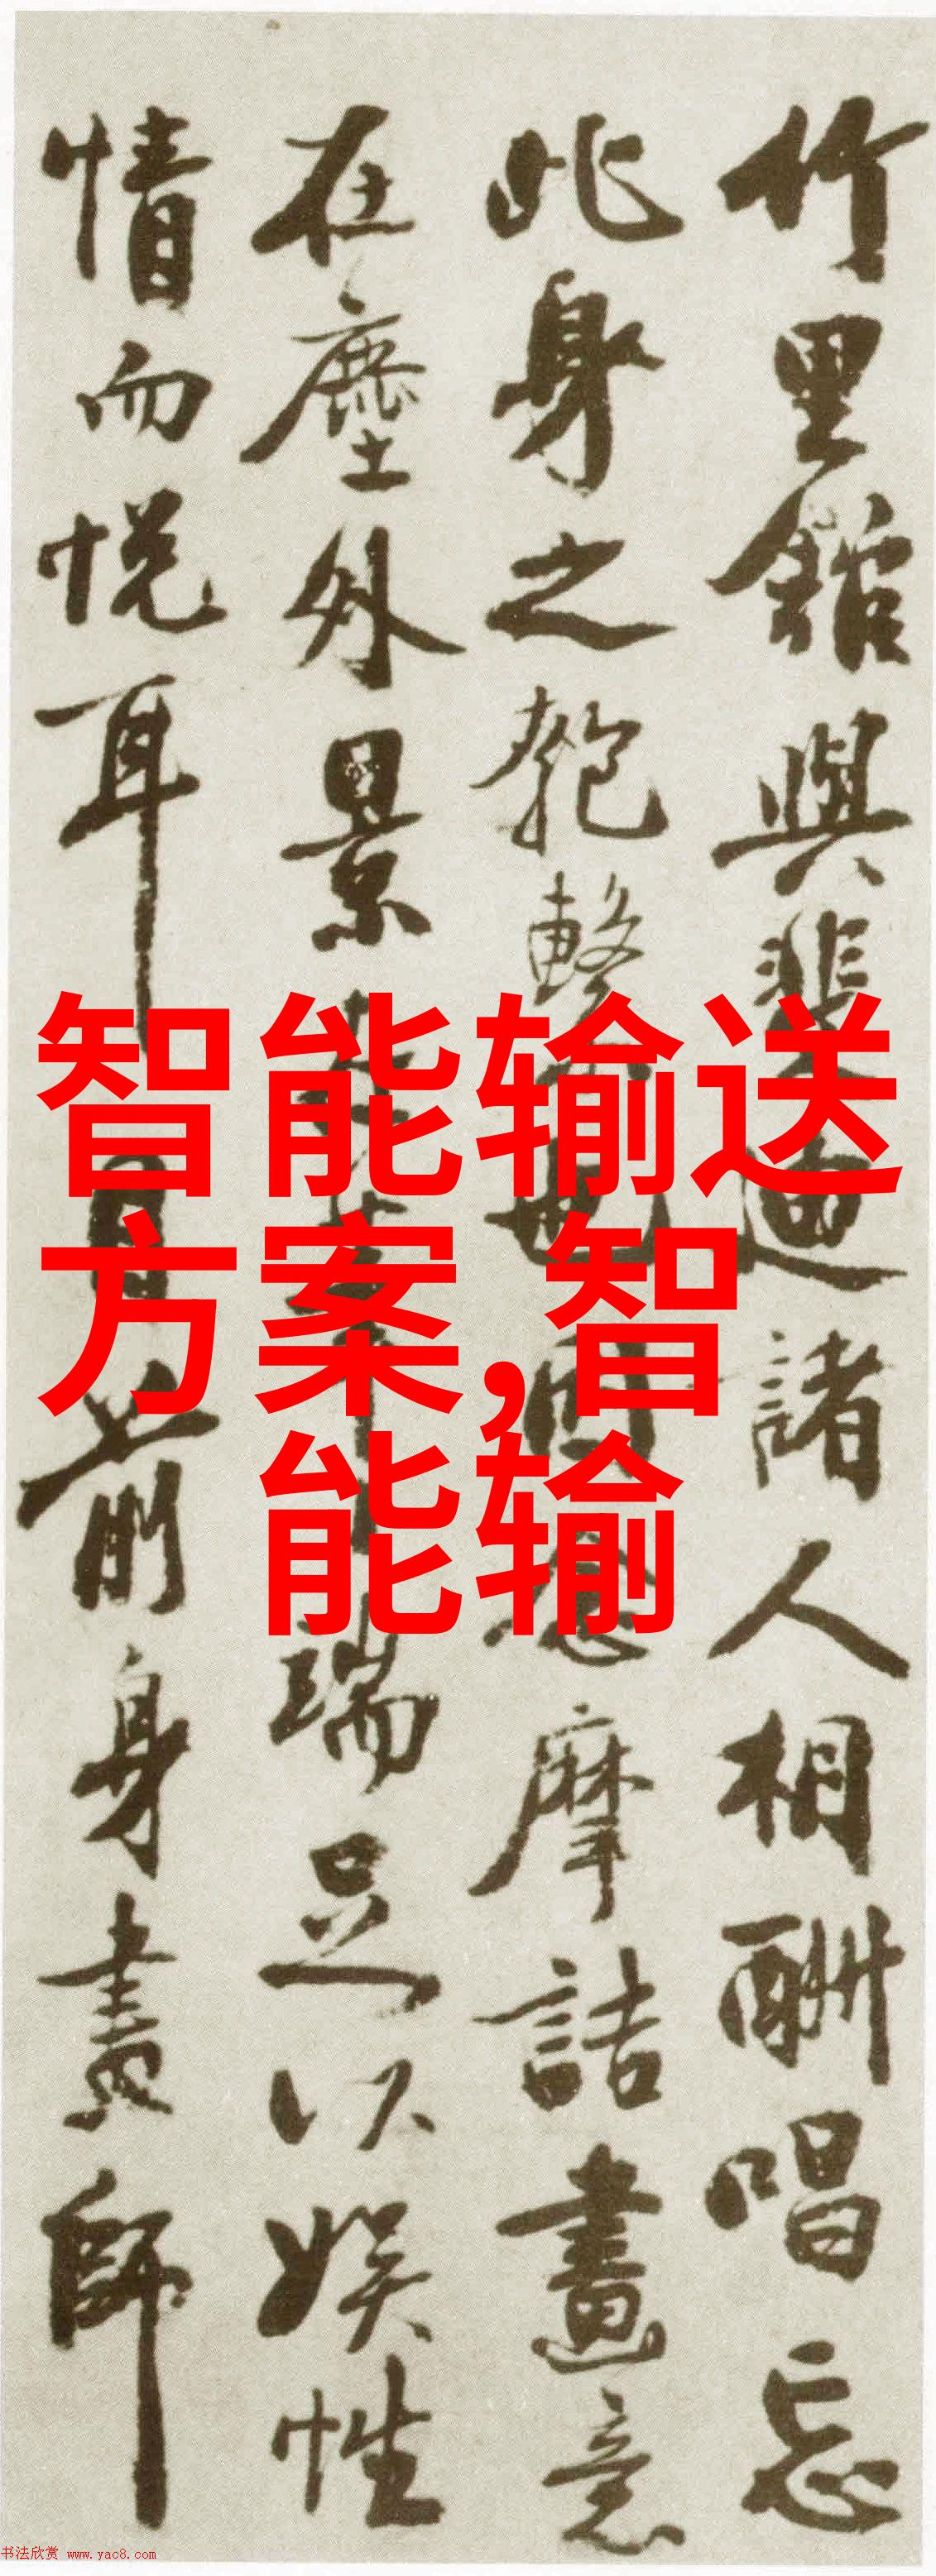 竹里館與裴迪諸人相酬唱忘
此身之匏繫也因念摩詰畫意
在塵外景在筆端足以娛性
情而悅耳目前身畫師
智能输送
方案,智
能输
书法欣赏 www.yac8.com